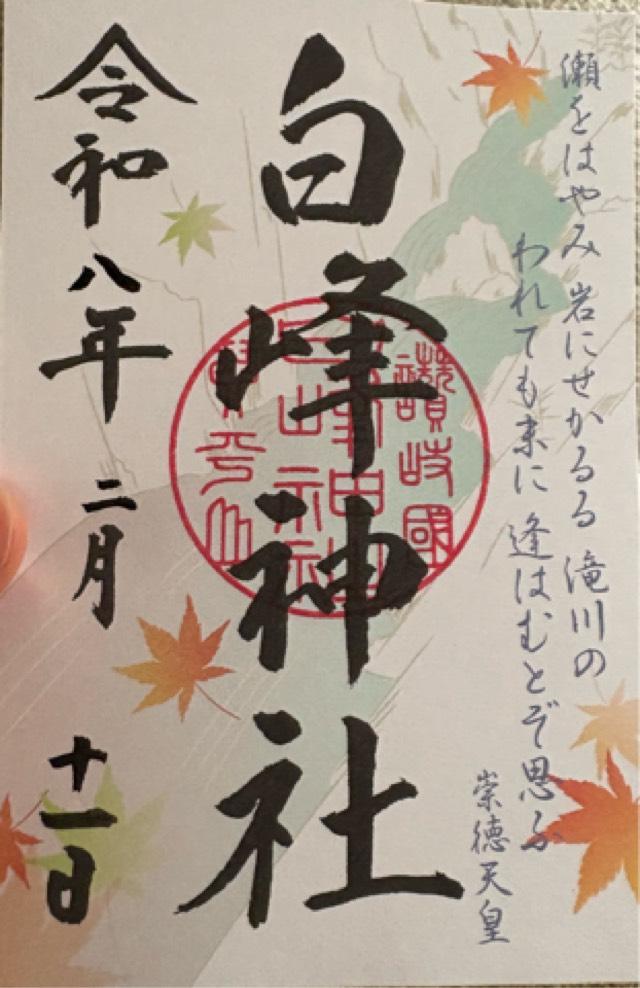 瀬をはやみ 岩にせかるる 滝川の
われても末に 逢はむとぞ思ふ
崇徳天皇
白峰神社
讃岐國
令和八年 二月 十一日